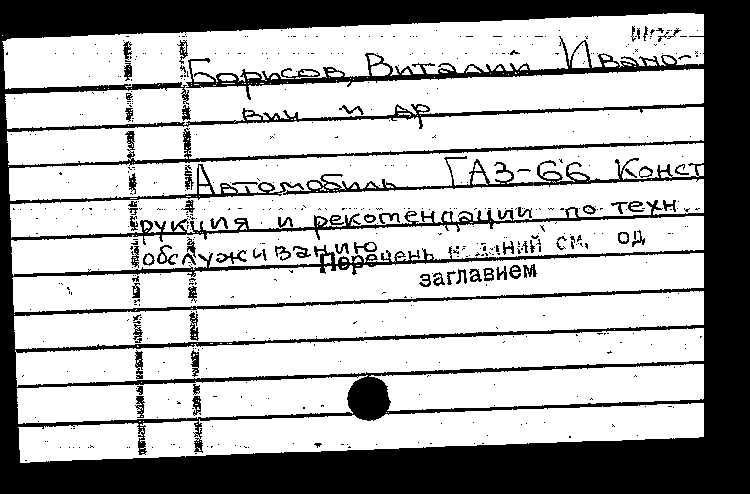 Борисов, Виталий Ивано-
вич и др
Автомобиль ГАЗ-66. Конст
рукция и рекомендации по техн.
обслуживанию
Перечень см. од
заглавием